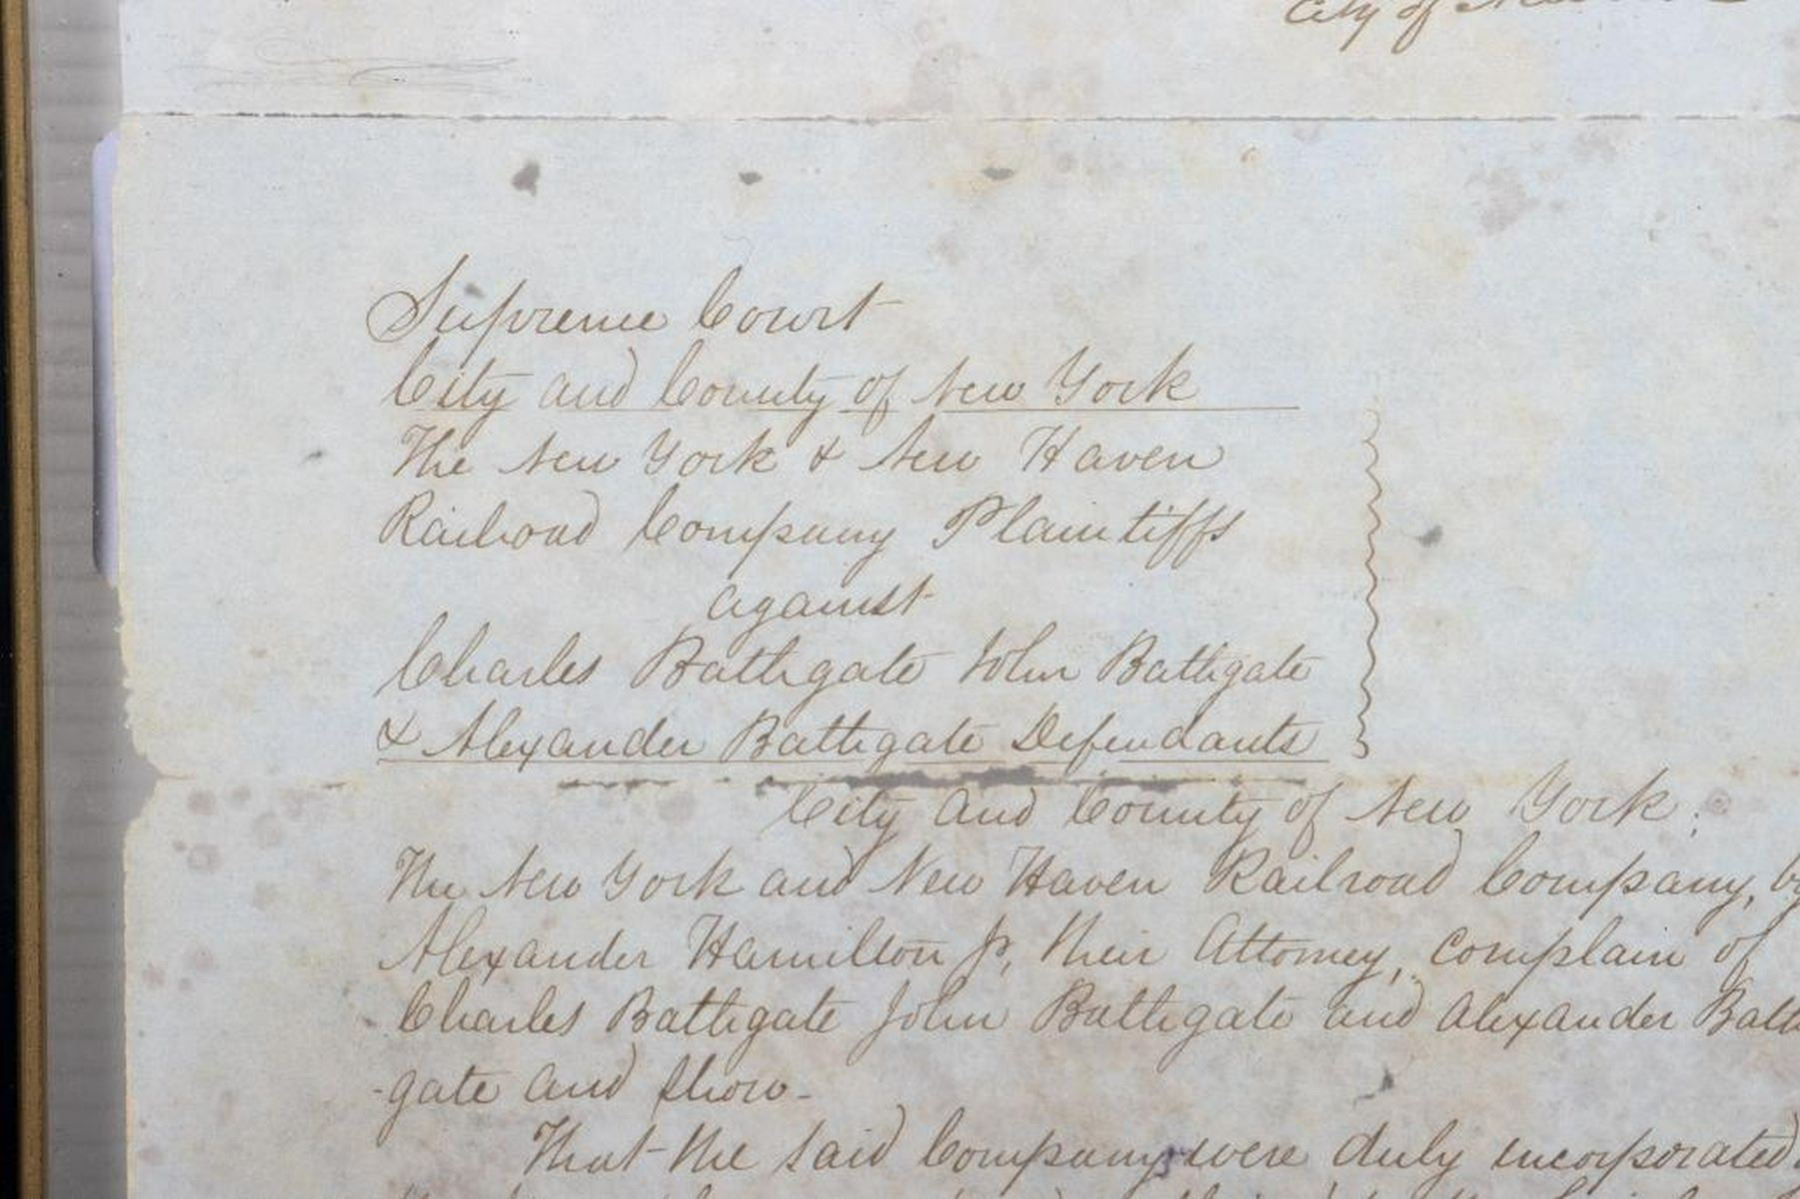 City of
Supreme Court
City and County of New York
The New York & New Haven
Railroad Company Plaintiffs
against
Charles Bathgate John Bathgate
& Alexander Bathgate Defendants
City and County of New York:
The New York and New Haven Railroad Company, by
Alexander Hamilton Jr, their Attorney, complain of
Charles Bathgate John Bathgate and Alexander Bath
-gate and show-
That the said Company were duly incorporated